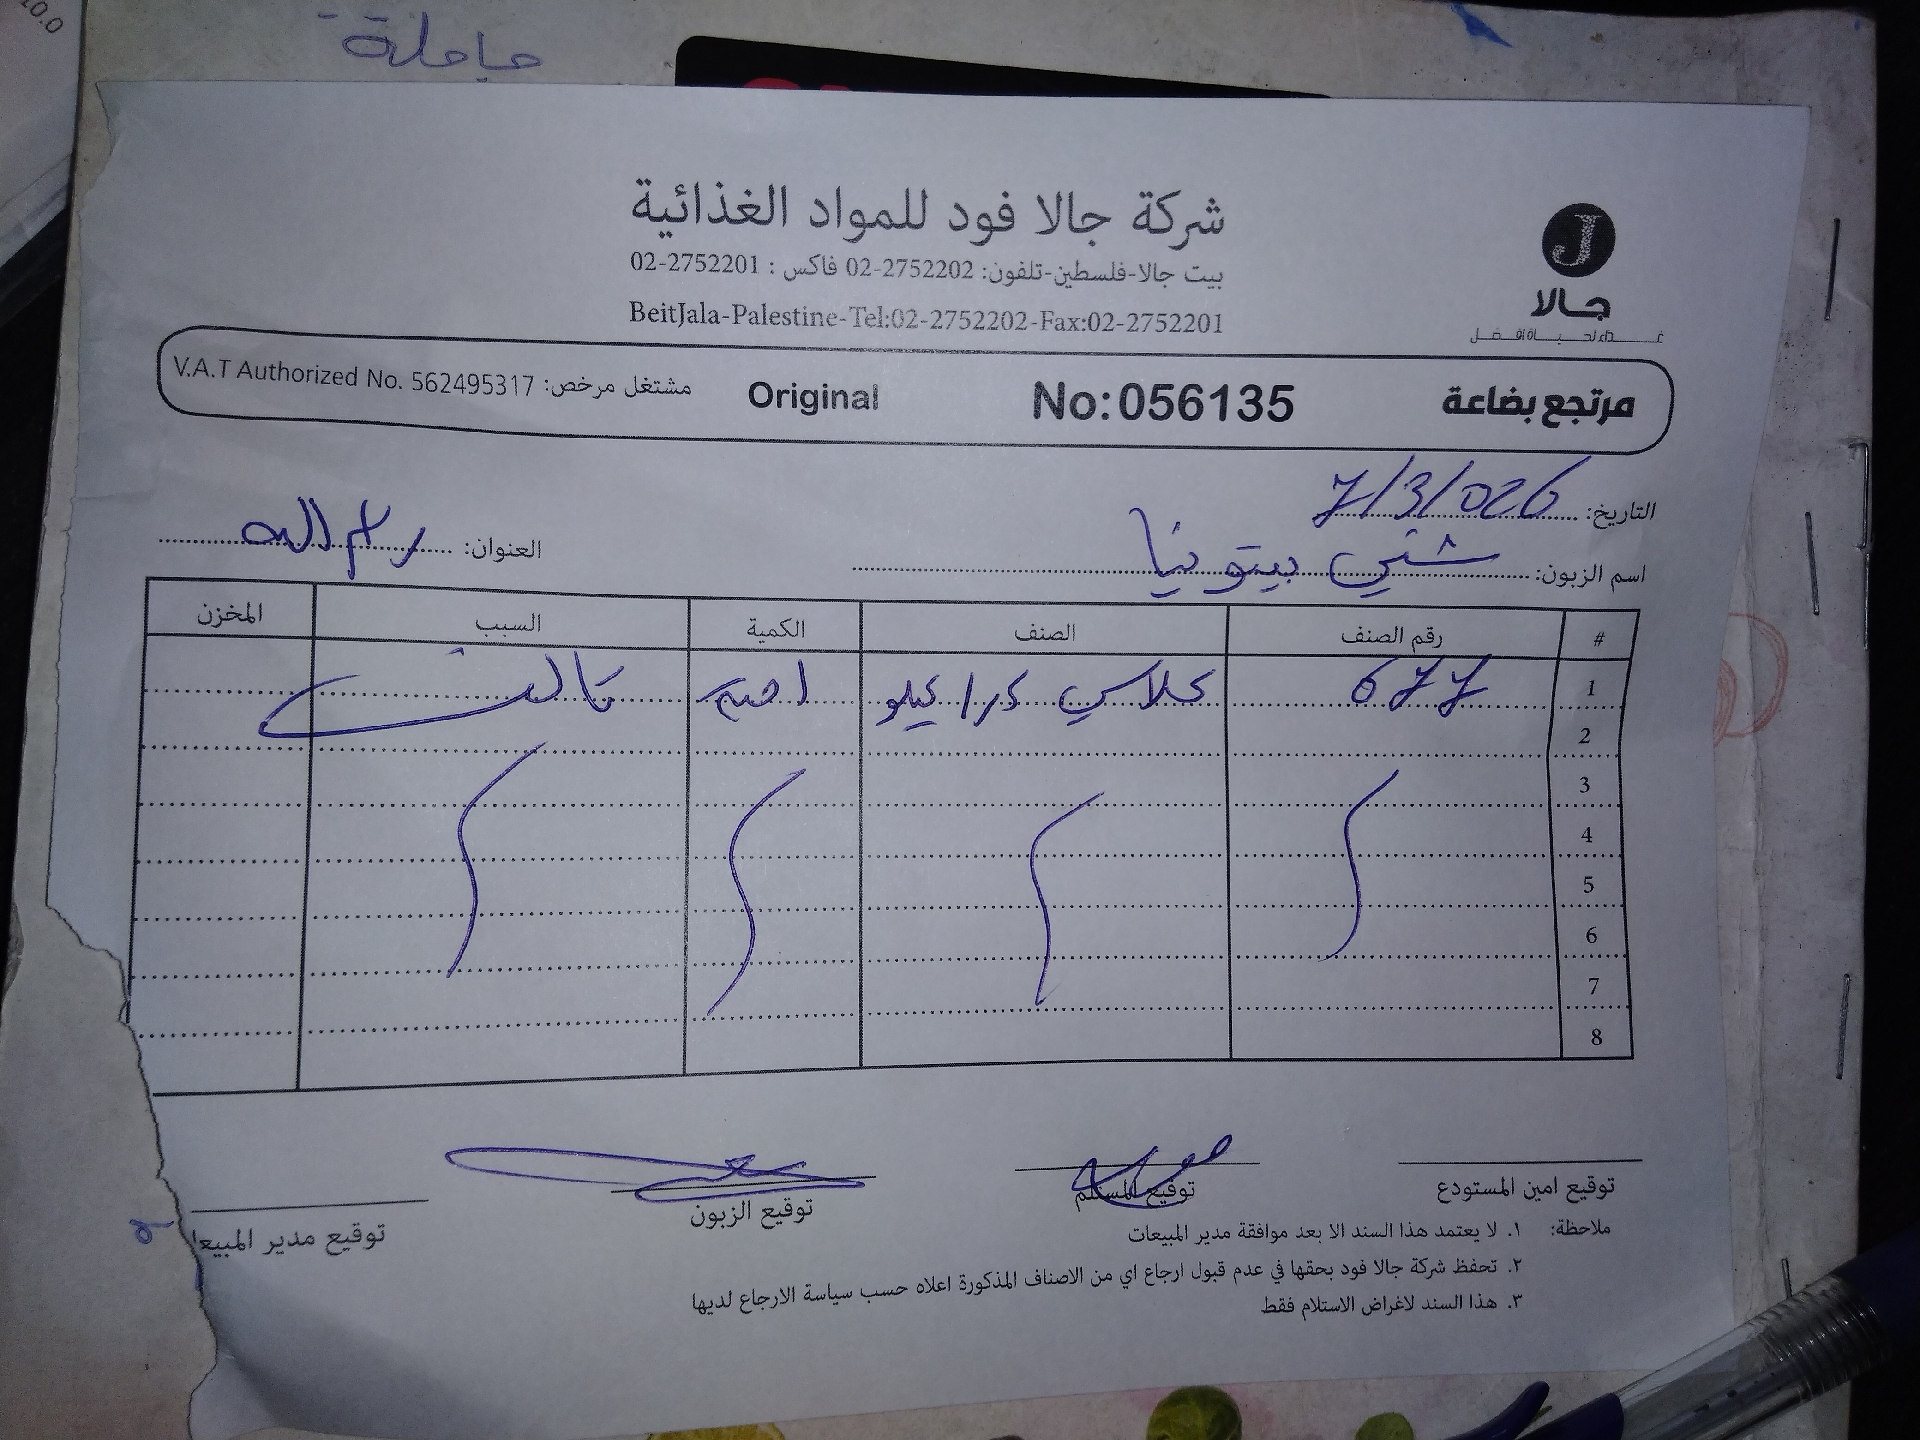 حاملة
10.0
شركة جالا فود للمواد الغذائية
بيت جالا-فلسطين-تلفون: 02-2752202 فاكس : 02-2752201
BeitJala-Palestine-Tel:02-2752202-Fax:02-2752201
J
جالا
غذاء لحياة افضل
مرتجع بضاعة No:056135 Original مشتغل مرخص: V.A.T Authorized No. 562495317
التاريخ: 7/3/026
اسم الزبون: شني بيتونيا العنوان: رام الله
# رقم الصنف الصنف الكمية السبب المخزن
1 677 كيلو تالف
2
3
4
5
6
7
8
توقيع امين المستودع توقيع المستلم توقيع الزبون توقيع مدير المبيعا
ملاحظة: ١. لا يعتمد هذا السند الا بعد موافقة مدير المبيعات
٢. تحفظ شركة جالا فود بحقها في عدم قبول ارجاع اي من الاصناف المذكورة اعلاه حسب سياسة الارجاع لديها
٣. هذا السند لاغراض الاستلام فقط